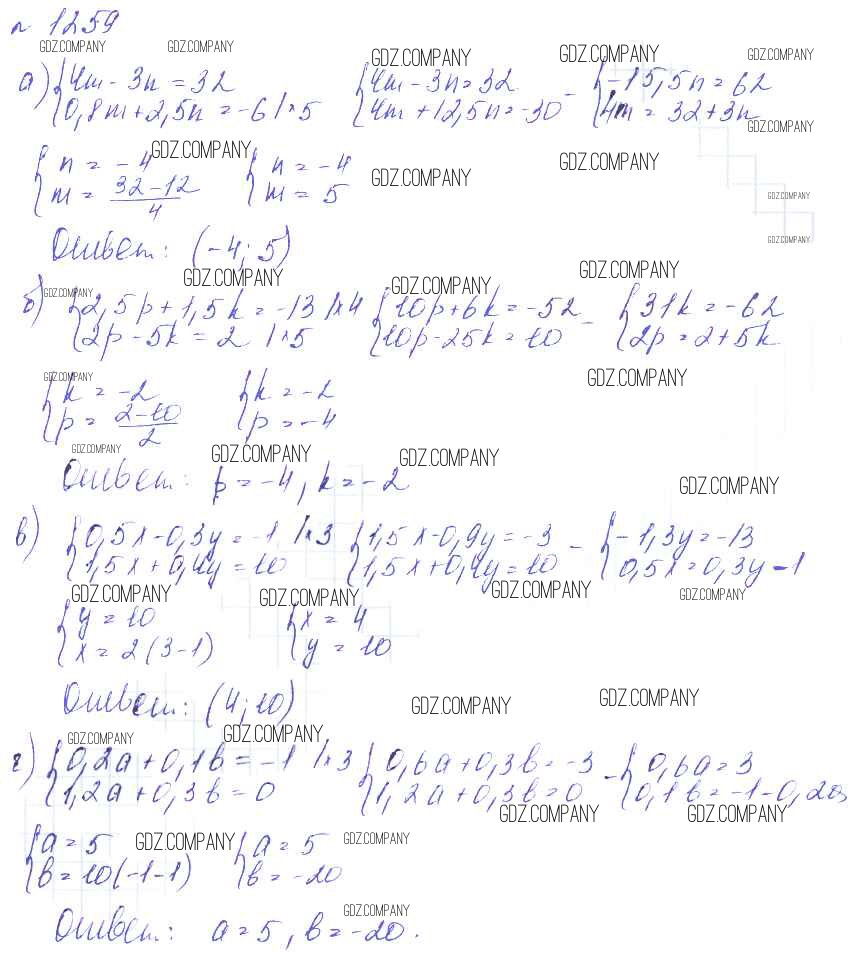 № 1259
GDZ.COMPANY GDZ.COMPANY GDZ.COMPANY GDZ.COMPANY GDZ.COMPANY
а) {4m - 3n = 32 {4m - 3n = 32 - {-15,5n = 62
{0,8m + 2,5n = -6 | ×5 {4m + 12,5n = -30 {4m = 32 + 3n
GDZ.COMPANY
{n = -4 GDZ.COMPANY {n = -4 GDZ.COMPANY GDZ.COMPANY
{m = (32-12)/4 {m = 5 GDZ.COMPANY
Ответ: (-4; 5) GDZ.COMPANY
GDZ.COMPANY GDZ.COMPANY GDZ.COMPANY GDZ.COMPANY
б) {2,5p + 1,5k = -13 | ×4 {10p + 6k = -52 - {31k = -62
{2p - 5k = 2 | ×5 {10p - 25k = 10 {2p = 2 + 5k
GDZ.COMPANY GDZ.COMPANY
{k = -2 {k = -2
{p = (2-10)/2 {p = -4
GDZ.COMPANY GDZ.COMPANY GDZ.COMPANY
Ответ: p = -4, k = -2 GDZ.COMPANY
в) {0,5x - 0,3y = -1 | ×3 {1,5x - 0,9y = -3 - {-1,3y = -13
{1,5x + 0,4y = 10 {1,5x + 0,4y = 10 {0,5x = 0,3y - 1
GDZ.COMPANY GDZ.COMPANY GDZ.COMPANY GDZ.COMPANY
{y = 10 {x = 4
{x = 2(3-1) {y = 10
Ответ: (4; 10) GDZ.COMPANY GDZ.COMPANY
GDZ.COMPANY GDZ.COMPANY
г) {0,2a + 0,1b = -1 | ×3 {0,6a + 0,3b = -3 - {0,6a = 3
{1,2a + 0,3b = 0 {1,2a + 0,3b = 0 {0,1b = -1 - 0,2a
GDZ.COMPANY GDZ.COMPANY
{a = 5 GDZ.COMPANY {a = 5 GDZ.COMPANY
{b = 10(-1-1) {b = -20
GDZ.COMPANY
Ответ: a = 5, b = -20.